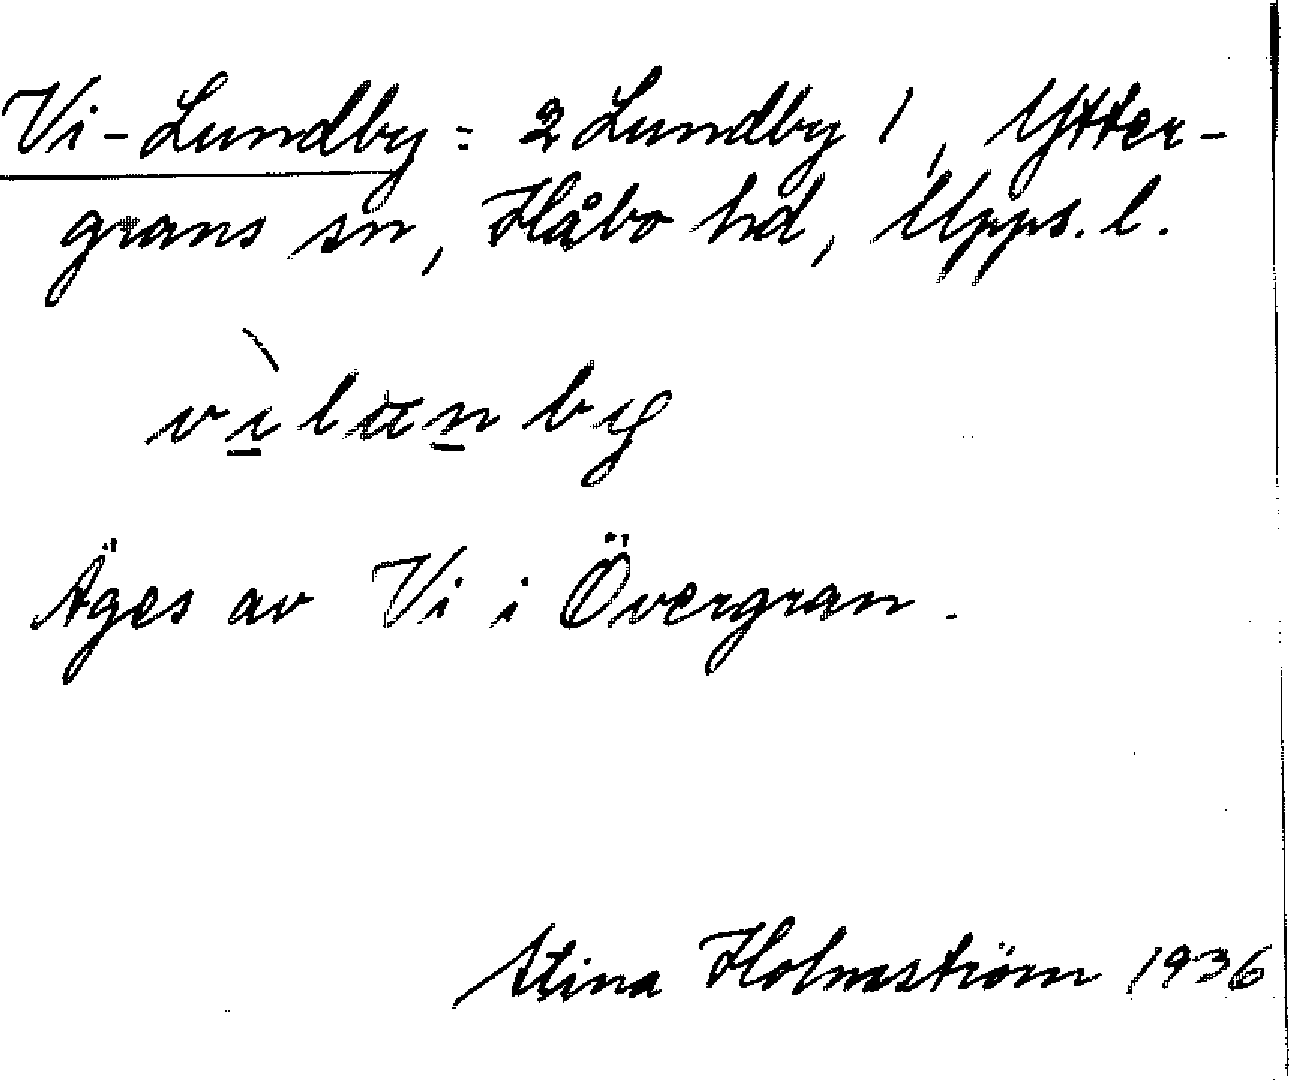 Vi-Lundby = 2 Lundby 1, Ytter-
grans sn, Håbo hd, Upps. l.
Äges av Vi i Övergran.
Stina Holmström 1936